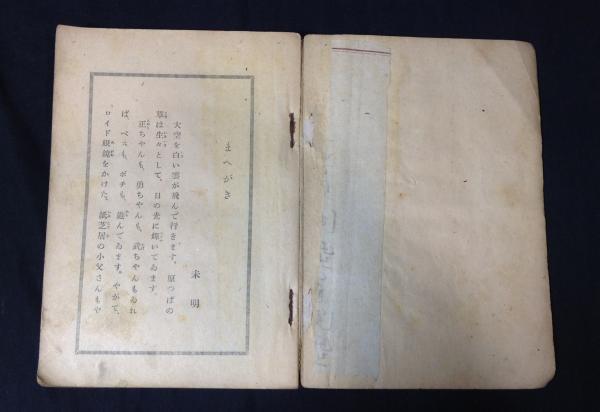 まへがき
未明
大空を白い雲が飛んで行きます。原つぱの
草は生々として、日の光に輝いてゐます。
正ちやんも、勇ちやんも、武ちやんもゐれ
ば、ペスも、ポチも、遊んでゐます。やがて、
ロイド眼鏡をかけた、紙芝居の小父さんもや